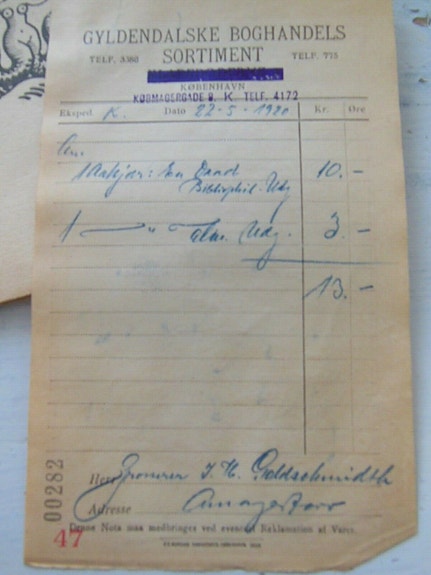 GYLDENDALSKE BOGHANDELS
TELF. 3382 SORTIMENT TELF. 775
KØBENHAVN
KØBMAGERGADE 9. K TELF. 4172
Eksped. K. Dato 22-5-1920 Kr. Øre
1 Aakjær: En Bibliophil. Udg 10.-
1 — " — alm. Udg. 3.-
13.-
Herr J. H. Goldschmidth
Adresse Amagertorv
Denne Nota maa medbringes ved eventuel Reklamation af Varer.
00282
47